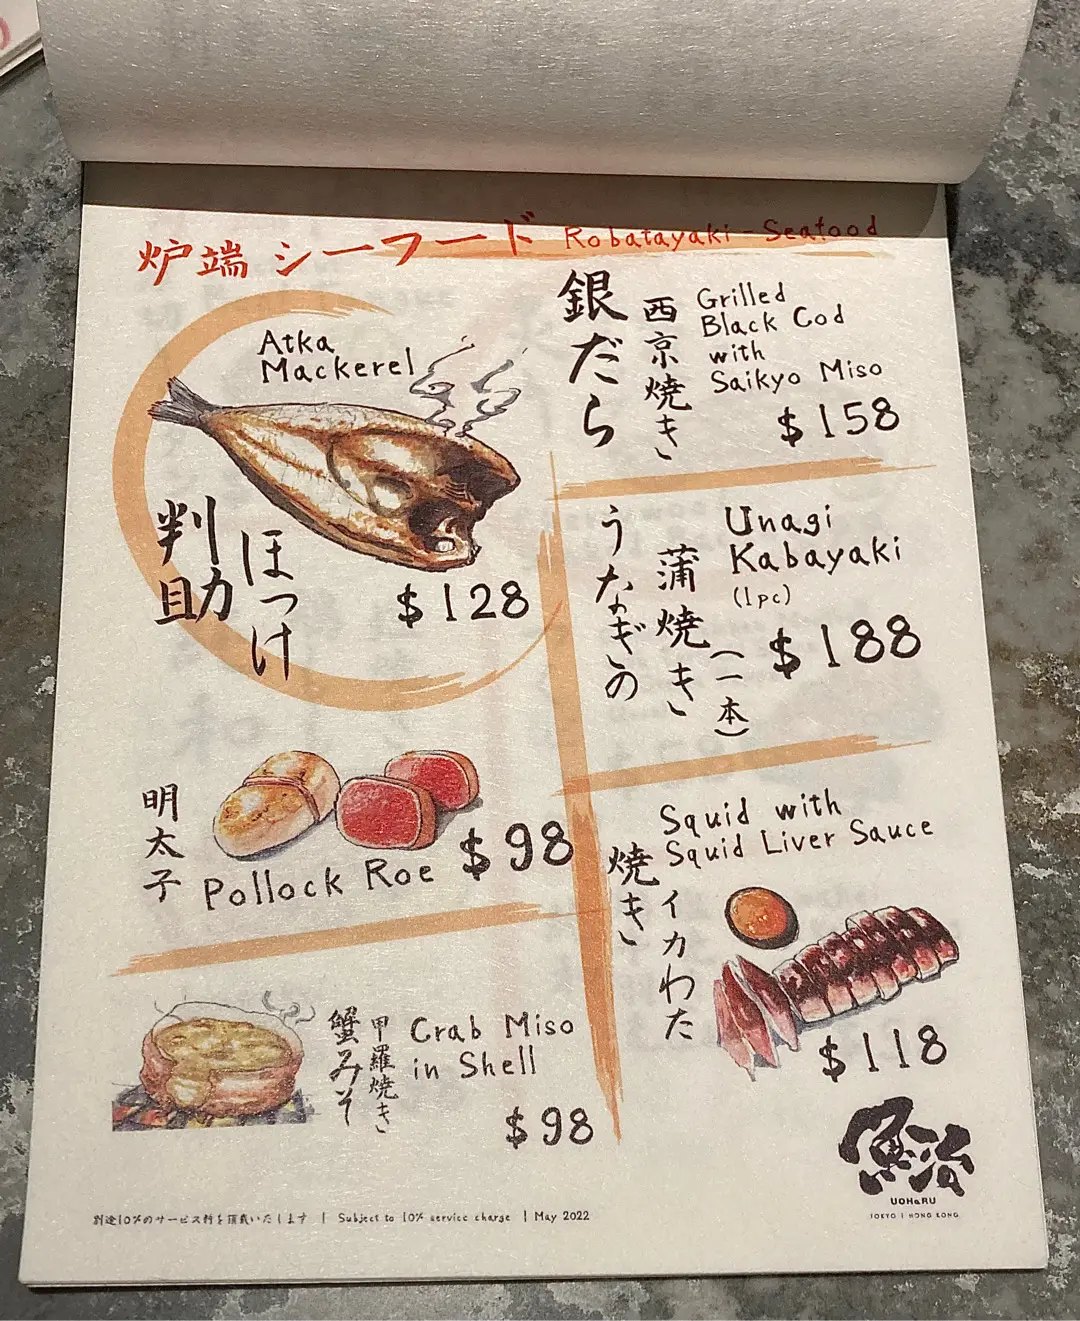 炉端 シーフード Robatayaki - Seafood
Atka
Mackerel
判助
ほっけ
$128
銀だら
西京焼き
Grilled
Black Cod
with
Saikyo Miso
$158
うなぎの
蒲焼き
(一本)
Unagi
Kabayaki
(1pc)
$188
明太子
Pollock Roe $98
Squid with
Squid Liver Sauce
イカわた
焼き
$118
蟹みそ
甲羅焼き
Crab Miso
in Shell
$98
別途10%のサービス料を頂戴いたします | Subject to 10% service charge | May 2022
魚治
UOHARU
TOKYO | HONG KONG